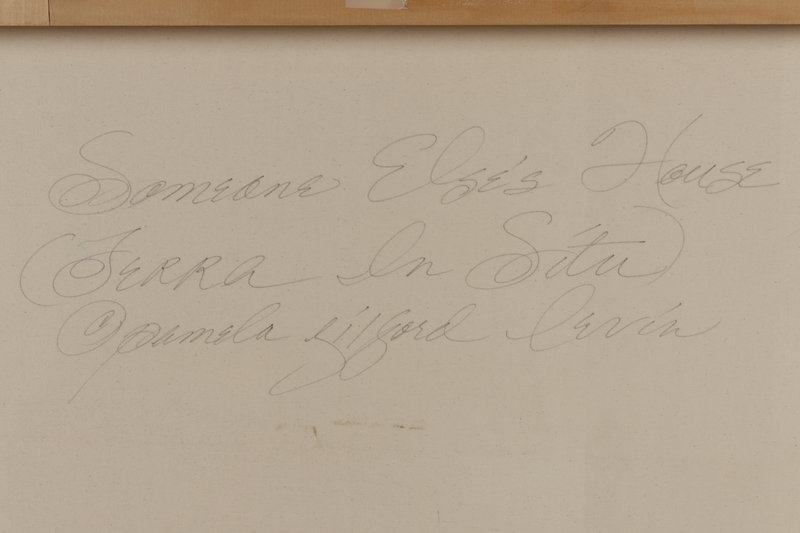 Someone Else's House
(Terra In Situ)
Pamela Levin